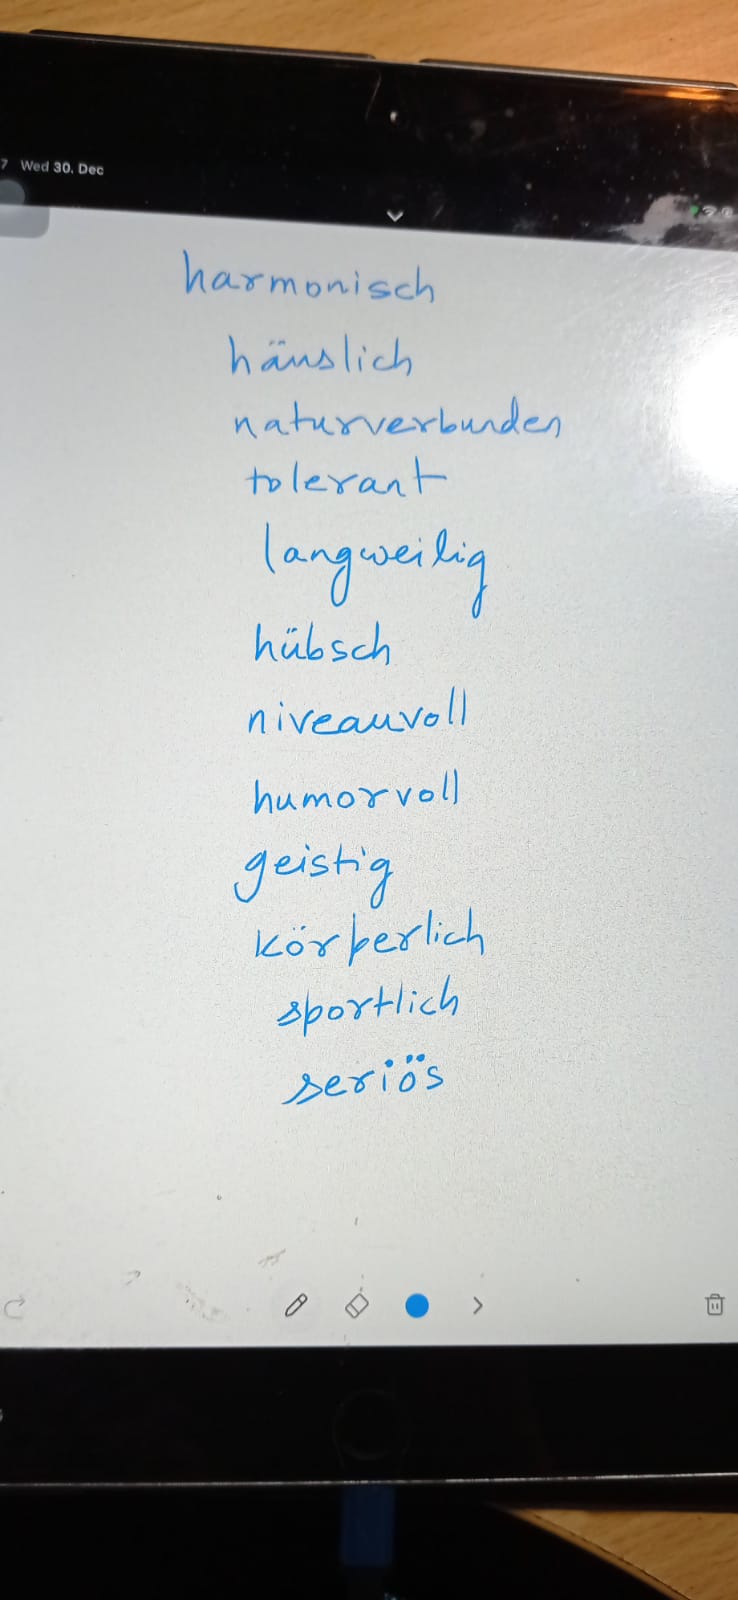 Wed 30. Dec
harmonisch
häuslich
naturverbunden
tolerant
langweilig
hübsch
niveauvoll
humorvoll
geistig
körperlich
sportlich
seriös